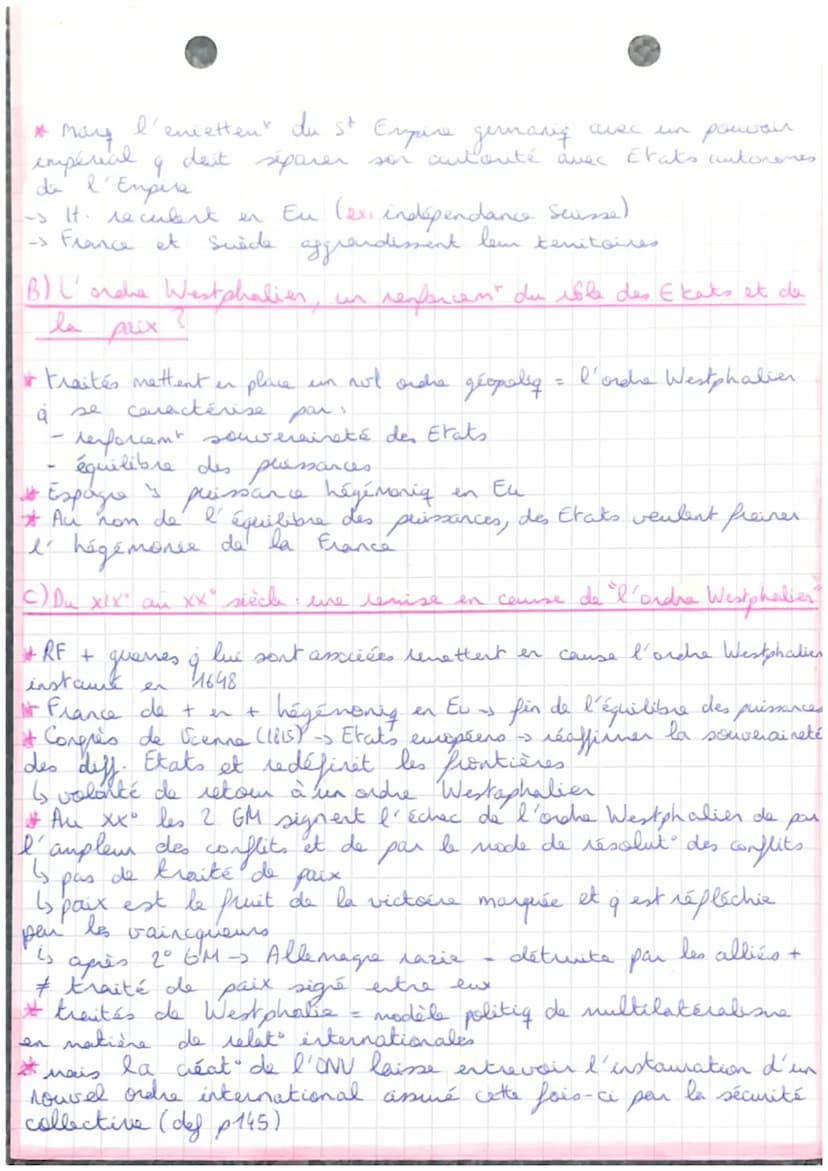 * marq l'émiettem^t du S^t Empire germaniq avec un pouvoir
impérial q doit séparer son autorité avec Etats autonomes
de l'Empire
-> H. reculent en Eu (ex: indépendance Suisse)
-> France et Suède aggrandissent leur territoires
B) L'ordre Westphalien, un renforcem^t du rôle des Etats et de
la paix ?
* traités mettent en place un nvl ordre géopolitiq = l'ordre Westphalien
q se caractérise par :
- renforcem^t souveraineté des Etats
- équilibre des puissances
* Espagne puissance hégémoniq en Eu
* Au nom de l'équilibre des puissances, des Etats veulent freiner
l'hégémonie de la France
C) Du XIX° au XX° siècle : une remise en cause de "l'ordre Westphalien"
* RF + guerres q lui sont associées remettent en cause l'ordre Westphalien
instauré en 1648
* France de + en + hégémoniq en Eu -> fin de l'équilibre des puissances
* Congrès de Vienne (1815) -> Etats européens -> réaffirmer la souveraineté
des diff. Etats et redéfinit les frontières
↳ volonté de retour à un ordre Westaphalien
* Au XX° les 2 GM signent l'échec de l'ordre Westphalien de par
l'ampleur des conflits et de par le mode de résolut° des conflits
↳ pas de traité de paix
↳ paix est le fruit de la victoire marquée et q est réfléchie
par les vaincqueurs
↳ après 2° GM -> Allemagne nazie = détruite par les alliés +
≠ traité de paix signé entre eux
* traités de Westphalie = modèle politiq de multilatéralisme
en matière de relat° internationales
* mais la créat° de l'ONU laisse entrevoir l'instauration d'un
nouvel ordre international assuré cette fois-ci par la sécurité
collective (def p145)